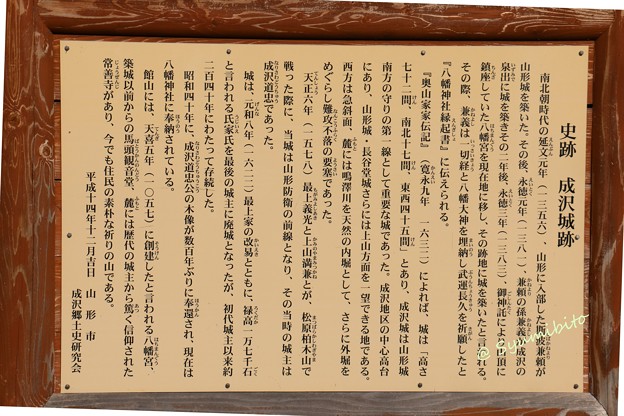 史跡　成沢城跡
南北朝時代の延文元年（一三五六）、山形に入部した斯波兼頼が
山形城を築いた。その後、永徳元年（一三八一）、兼頼の孫兼義が成沢の
泉出に城を築きその二年後、永徳三年（一三八三）御神託により館山頂に
鎮座していた八幡宮を現在地に移し、その跡地に城を築いたと言われる。
その際、兼義は一切経と八幡大神を埋納し武運長久を祈願したと
『八幡神社縁起書』に伝えられる。
『奥山家家伝記』（寛永九年　一六三二）によれば、城は「高さ
七十二間、南北十七間、東西四十五間」とあり、成沢城は山形城
南方の守りの第一線として重要な城であった。成沢地区の中心高台
にあり、山形城・長谷堂城さらには上山方面を一望できる地である。
西方は急斜面、麓には鳴澤川を天然の内堀として、さらに外堀を
めぐらし難攻不落の要塞であった。
天正六年（一五七八）最上義光と上山満兼とが、松原柏木山で
戦った際に、当城は山形防衛の前線となり、その当時の城主は
成沢道忠であった。
城は、元和八年（一六二二）最上家の改易とともに、禄高一万七千石
と言われる氏家氏を最後の城主に廃城となったが、初代城主以来約
二百四十年にわたって存続した。
昭和四十年に、成沢道忠公の木像が数百年ぶりに奉還され、現在は
八幡神社に奉納されている。
館山には、天喜五年（一〇五七）に創建したと言われる八幡宮、
築城以前からの馬頭観音堂、麓には歴代の城主から篤く信仰された
常善寺があり、今でも住民の素朴な祈りの山である。
平成十四年十二月吉日　山形市
成沢郷土史研究会
© Syumibito